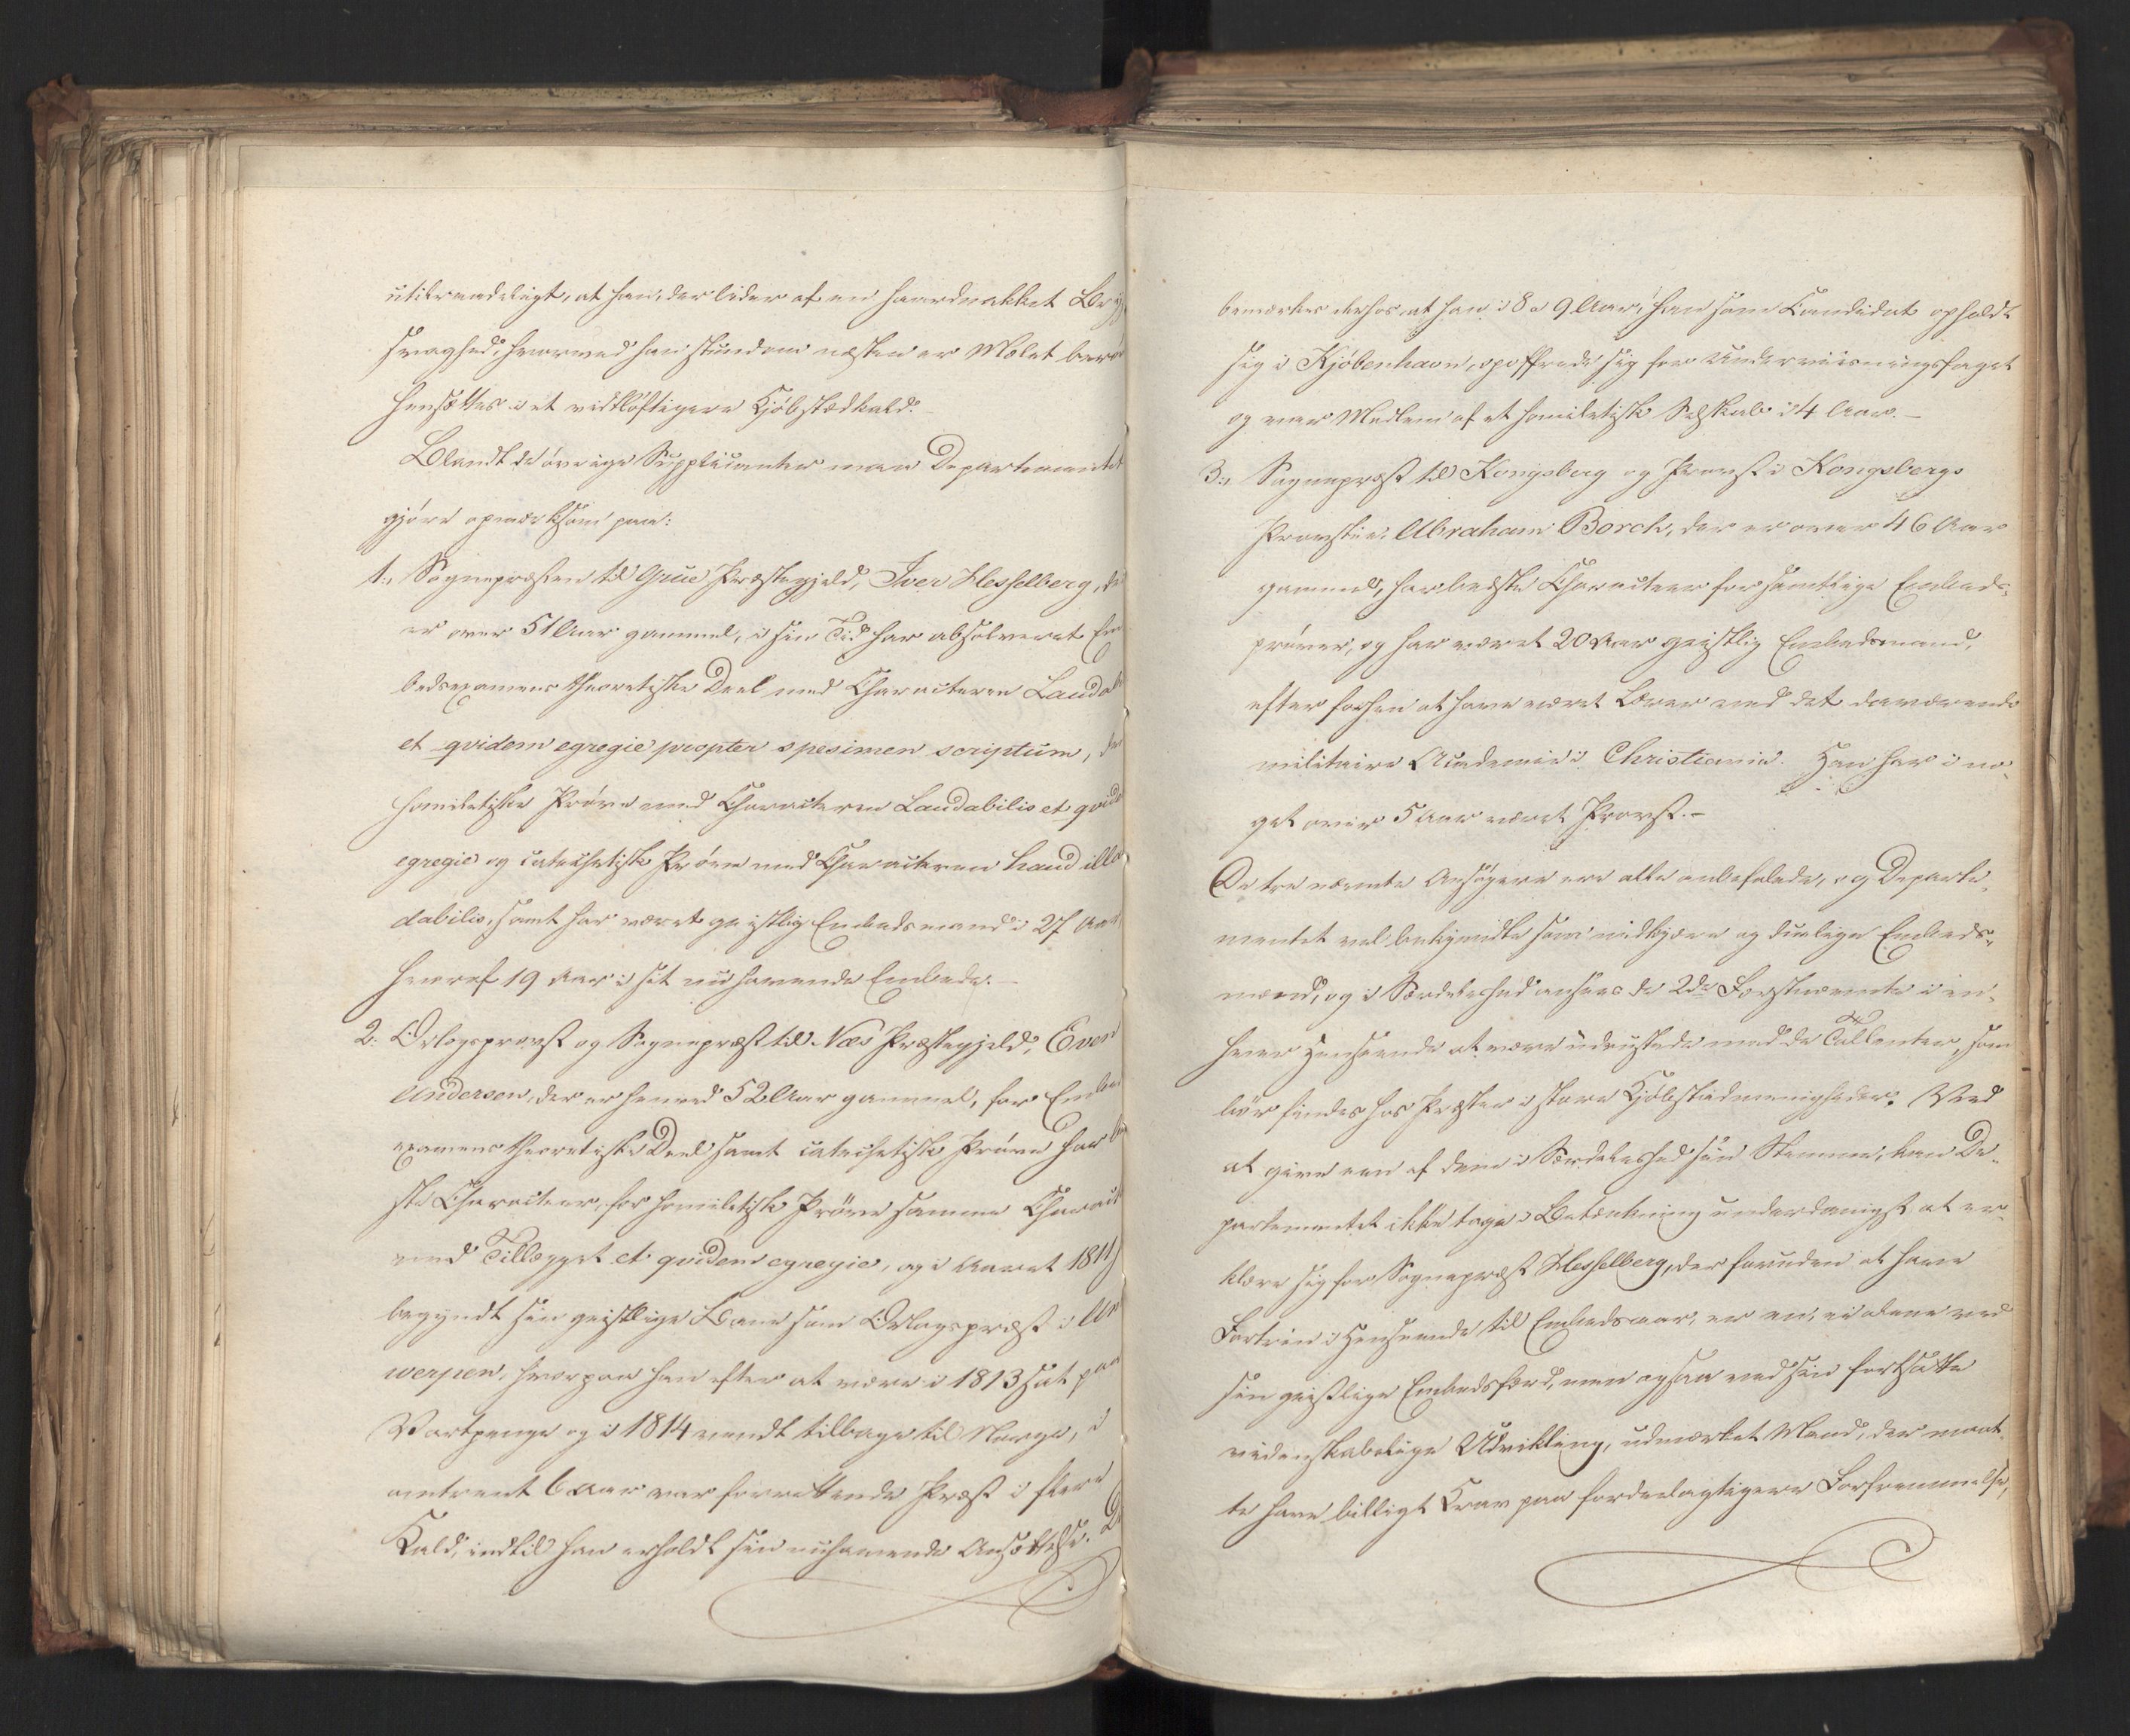 utilraadeligt, at han, der lider af en haardnakket Bryst
svaghed, hvorved han stundom næsten er Mælet berøvet
hensættes i et vidtløftigere Kjøbstædkald.
Blandt de øvrige Supplicanter maa Departementet
gjøre opmærksom paa:
1., Sognepræsten til Grue Præstegjeld, Iver Hesselberg, der
er over 51 Aar gammel, i sin Tid har absolveret Em
bedsexamens theoretiske Deel med Characteren Laudab
et qvidem egregie propter spesimen scriptum, den
homiletiske Prøve med Characteren Laudabilis et qvidem
egregie og catechetiske Prøve med Characteren haud illau
dabilis, samt har været geistlig Embedsmand i 27 Aar,
hvoraf 19 Aar i sit nuhavende Embede. —
2. Orlogsprovst og Sognepræst til Næs Præstegjeld, Even
Andersen, der er henved 52 Aar gammel, for Embeds
examens theoretiske Deel samt catechetiske Prøve har be
ste Characteer, for homiletiske Prøve samme Charact
med Tillægget et qvidem egregie, og i Aaret 1811
begyndt sin geistlige Bane som Orlogspræst i Ant
werpen, hvorpaa han efter at være i 1813 sat paa
Vartpenge og i 1814 vendt tilbage til Norge, i
omtrent 6 Aar var forrettende Præst i flere
Kald, indtil han erholdt sin nuhavende Ansættelse. Der
bemærkes derhos at han i 8 a 9 Aar, han som Candidat opholdt
sig i Kjöbenhavn, opoffrede sig for Underviisningsfaget
og var Medlem af et homiletisk Selskab i 4 Aar. —
3., Sognepræst til Kongsberg og Provst i Kongsbergs
Provstie, Abraham Borch, der er over 46 Aar
gammel, har bedste Characteer for samtlige Embeds-
prøver, og har været 20 Aar geistlig Embedsmand,
efter forhen at have været Lærer ved det daværende
militaire Academie i Christiania. Han har i no-
get over 5 Aar været Provst. —
De tre nævnte Ansøgere ere alle anbefalede, og Departe-
mentet vel bekjendte som nidkjære og duelige Embeds-
mænd, og i Særdeleshed ansees de 2de Førstnævnte i en-
hver Henseende at være udrustede med de Tallenter, som
bør findes hos Præster i store Kjøbstadmenigheder. Ved
at give een af dem i Særdeleshed sin Stemme, kan De-
partementet ikke tage i Betænkning underdanigst at er-
klære sig for Sognepræst Hesselberg, der foruden at have
Fortrin i Henseende til Embedsaar, er en, ei alene ved
sin geistlige Embedsfærd, men ogsaa ved sin fortsatte
videnskabelige Udvikling, udmærket Mand, der maat-
te have billigt Krav paa fordeelagtigere Forfremmelse,